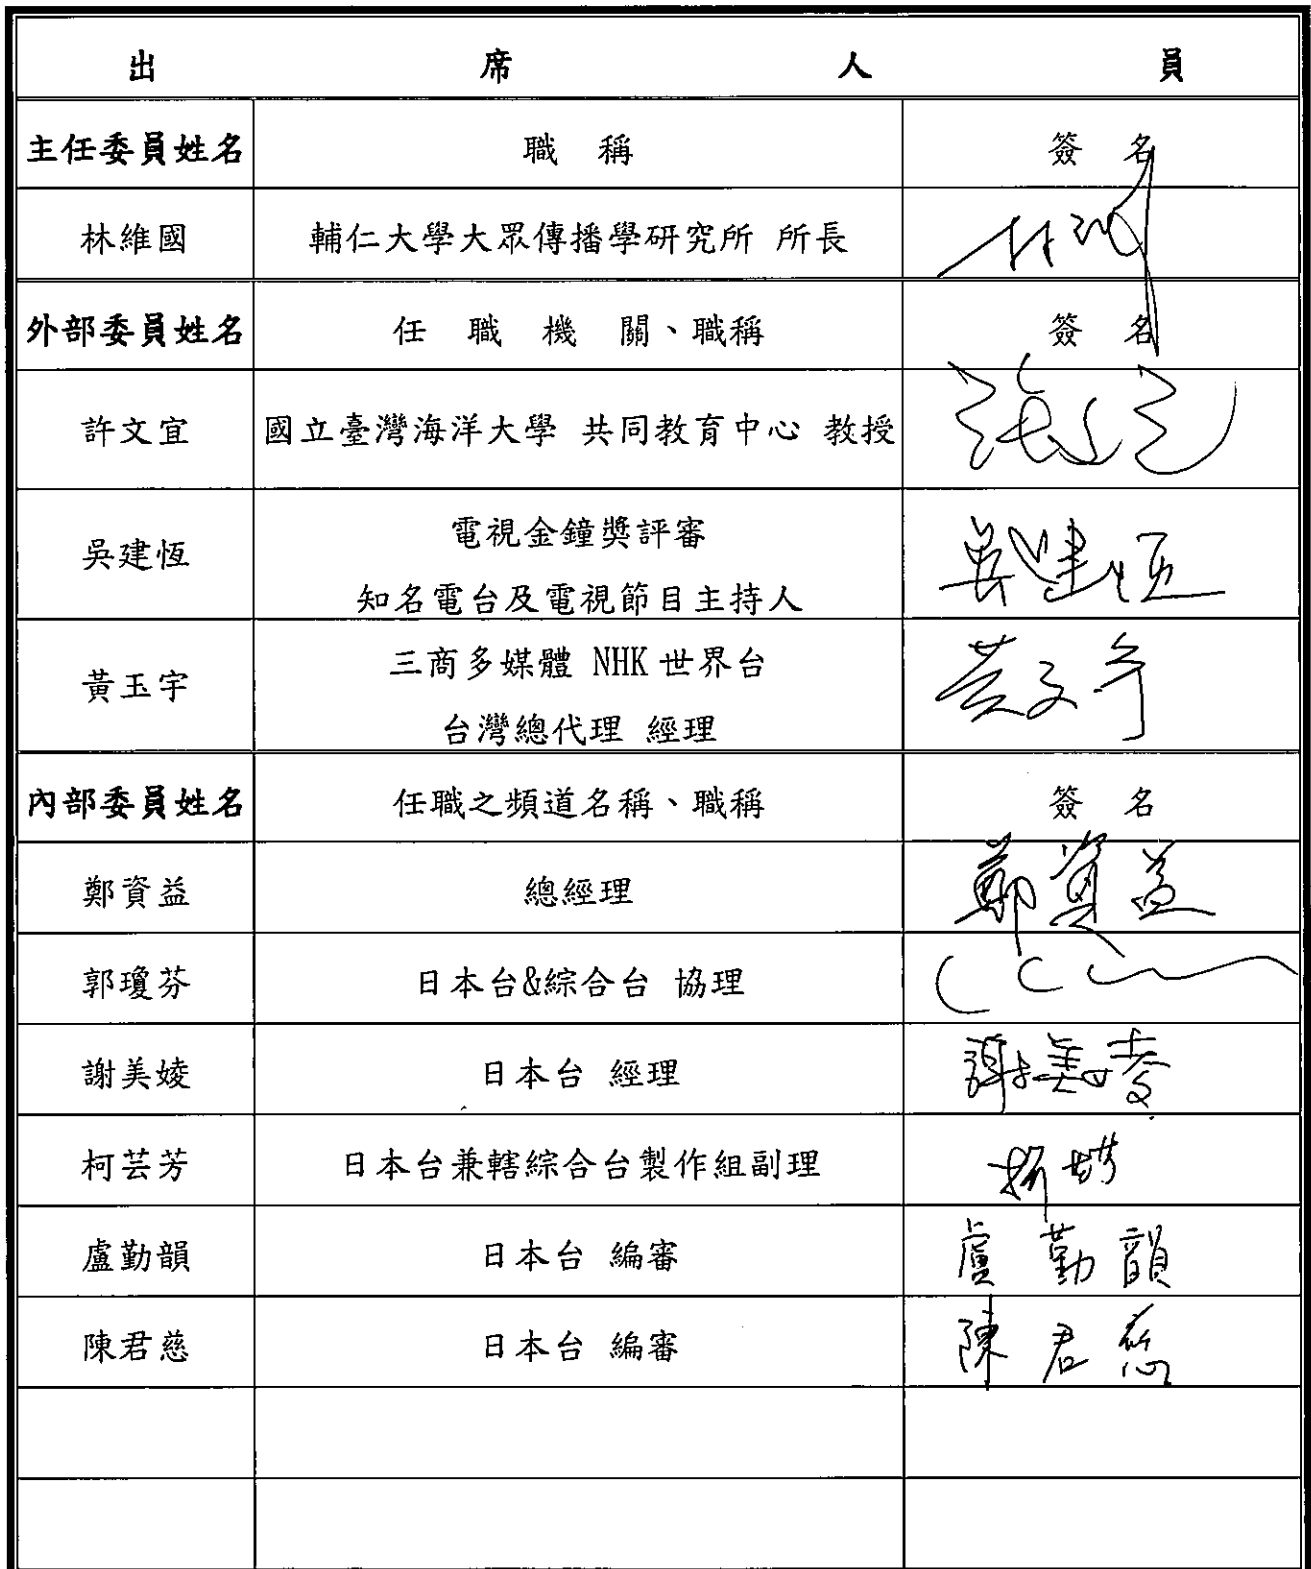 出席人員
主任委員姓名 職稱 簽名
林維國 輔仁大學大眾傳播學研究所 所長
外部委員姓名 任職機關、職稱 簽名
許文宜 國立臺灣海洋大學 共同教育中心 教授
吳建恆 電視金鐘獎評審 吳建恆
知名電台及電視節目主持人
黃玉宇 三商多媒體 NHK 世界台
台灣總代理 經理
內部委員姓名 任職之頻道名稱、職稱 簽名
鄭資益 總經理 鄭資益
郭瓊芬 日本台&綜合台 協理
謝美婈 日本台 經理 謝美婈
柯芸芳 日本台兼轄綜合台製作組副理
盧勤韻 日本台 編審 盧勤韻
陳君慈 日本台 編審 陳君慈